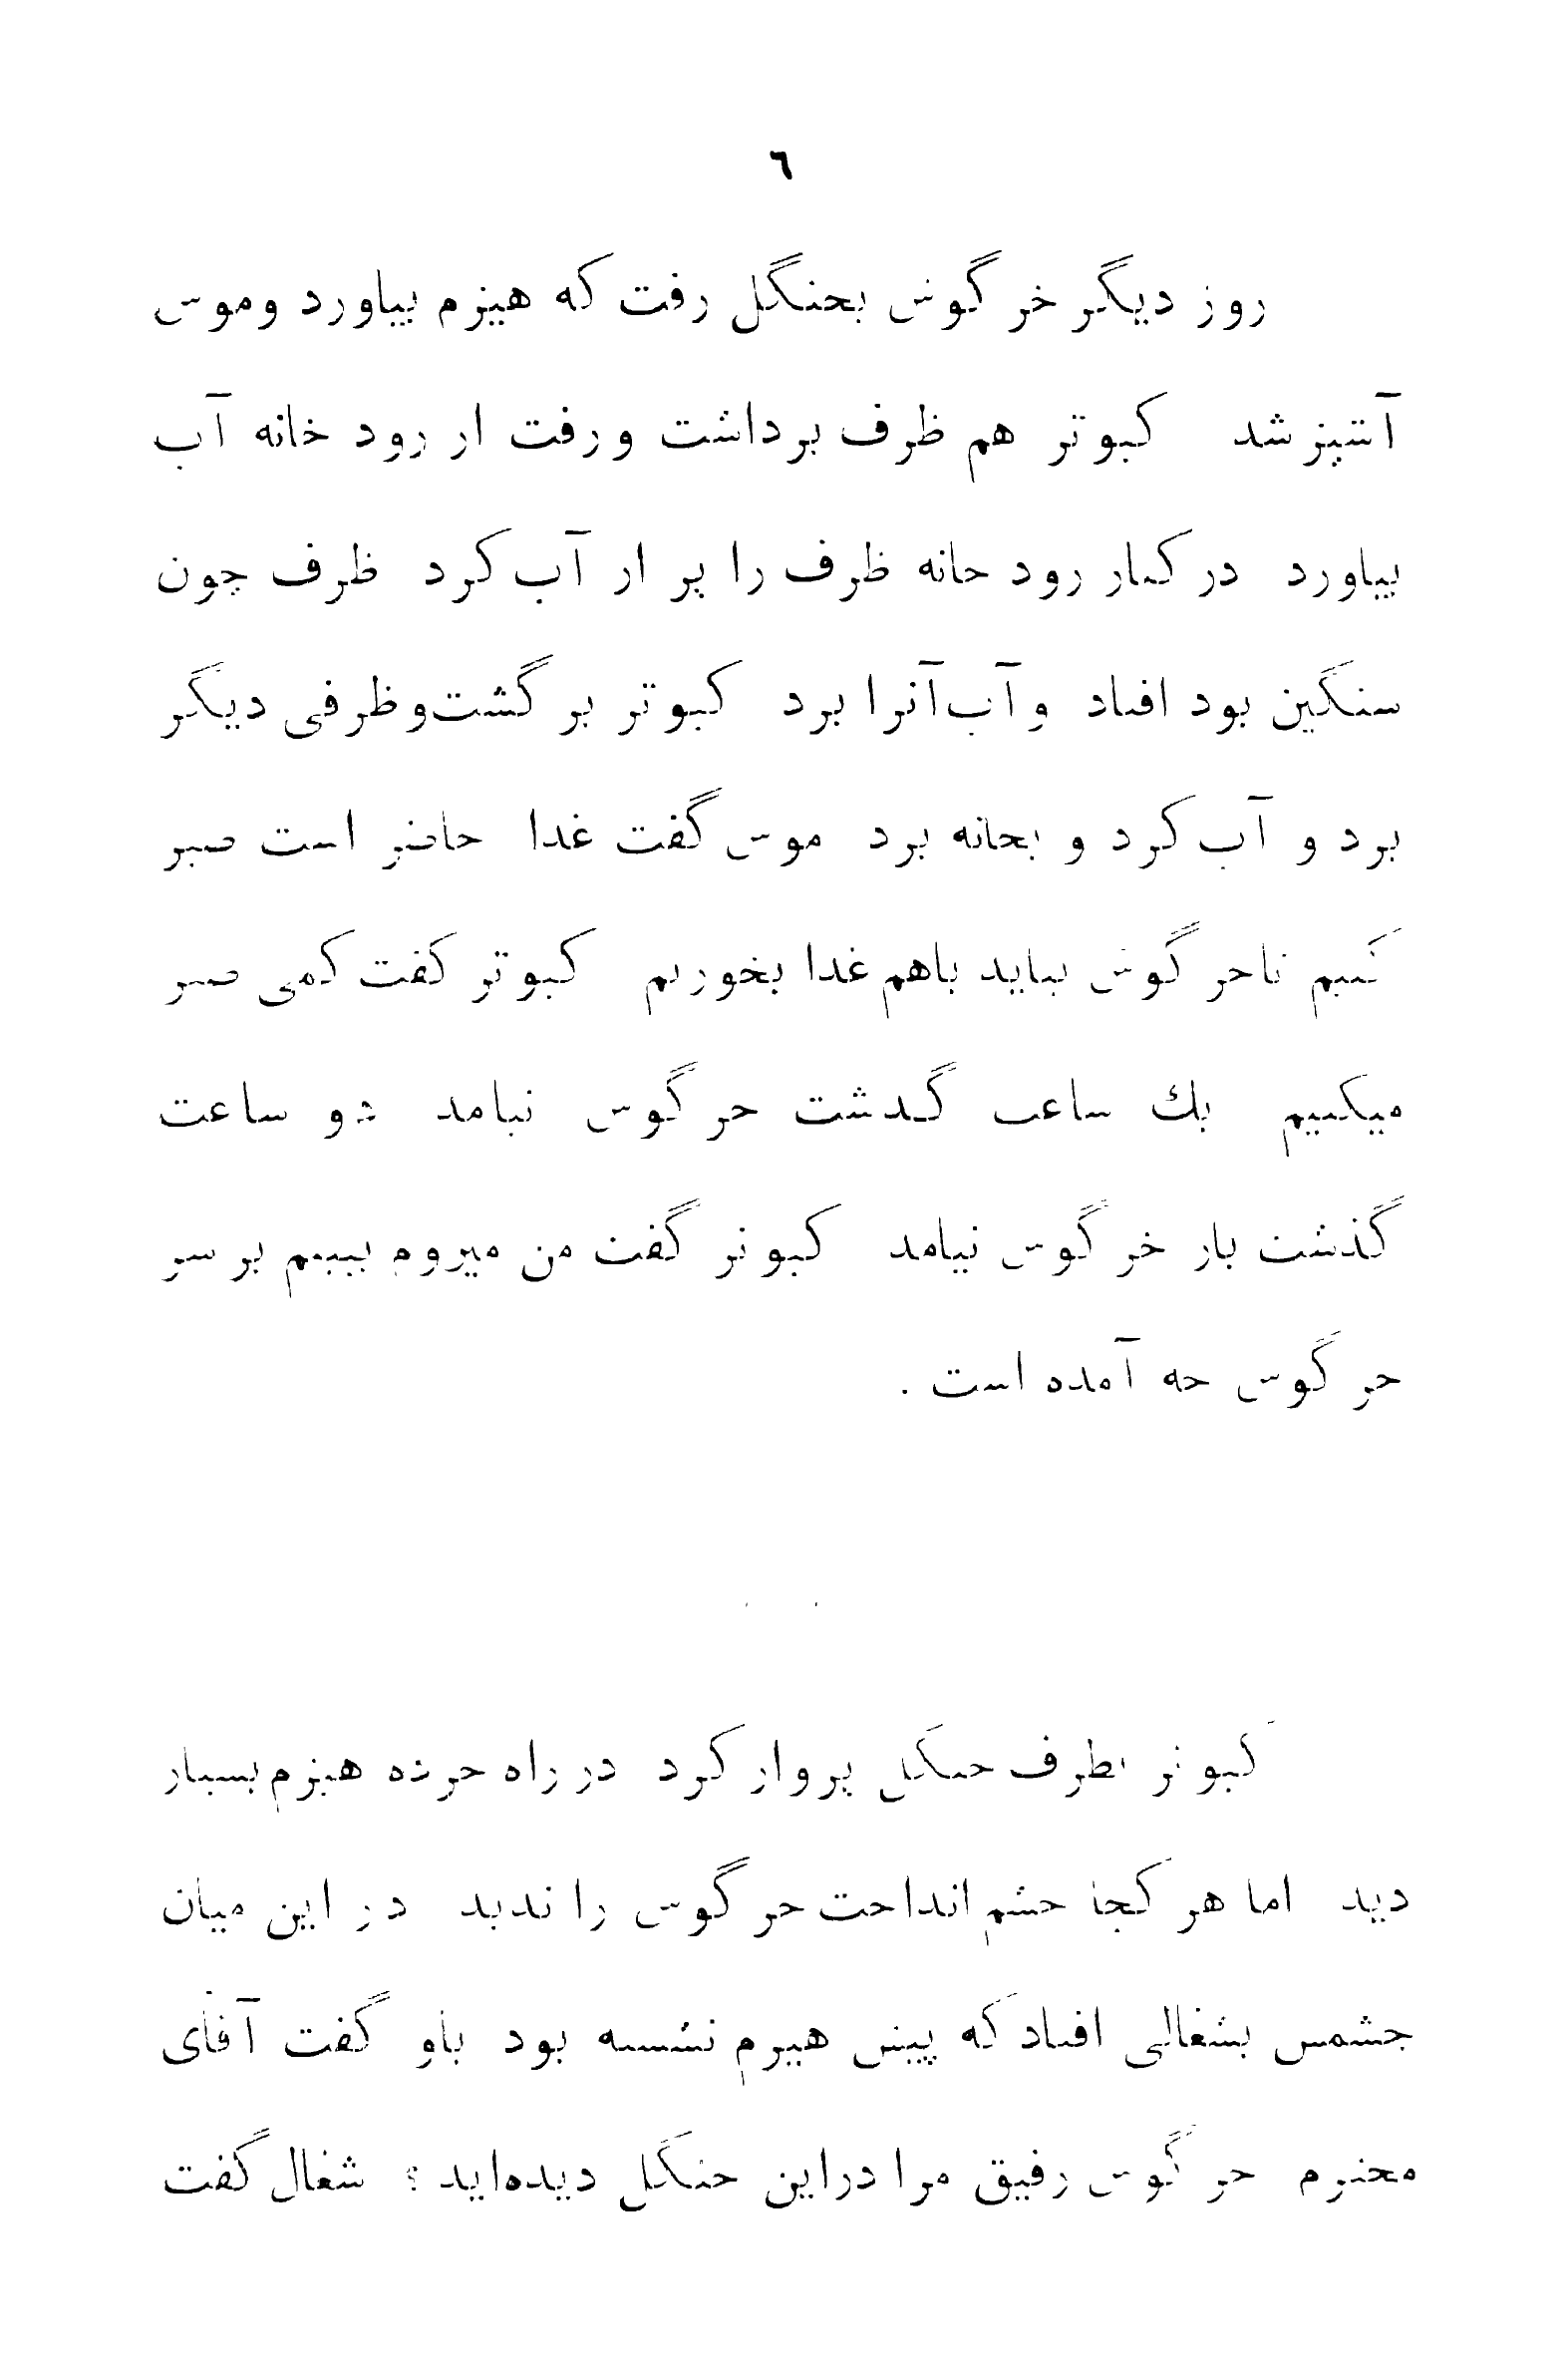 ٦
روز دیگر خر گوش بجنگل رفت که هیزم بیاورد وموش
آشپز شد کبوتر هم ظرف برداشت ورفت از رود خانه آب
بیاورد در کنار رود خانه ظرف را پر از آب کرد ظرف چون
سنگین بود افتاد و آب آنرا برد کبوتر بر گشت وظرفی دیگر
برد و آب کرد و بخانه برد موش گفت غذا حاضر است صبر
کنیم تاخر گوش بیاید باهم غذا بخوریم کبوتر گفت کمی صبر
میکنیم یك ساعت گذشت خر گوش نیامد دو ساعت
گذشت باز خر گوش نیامد کبوتر گفت من میروم ببینم بر سر
خر گوش چه آمده است .
کبوتر بطرف جنگل پرواز کرد در راه خرده هیزم بسیار
دید اما هر کجا چشم انداخت خر گوش را ندید در این میان
چشمش بشغالی افتاد که پیش هیزم نشسته بود باو گفت آقای
محترم خر گوش رفیق مرا دراین جنگل دیده‌اید ؟ شغال گفت